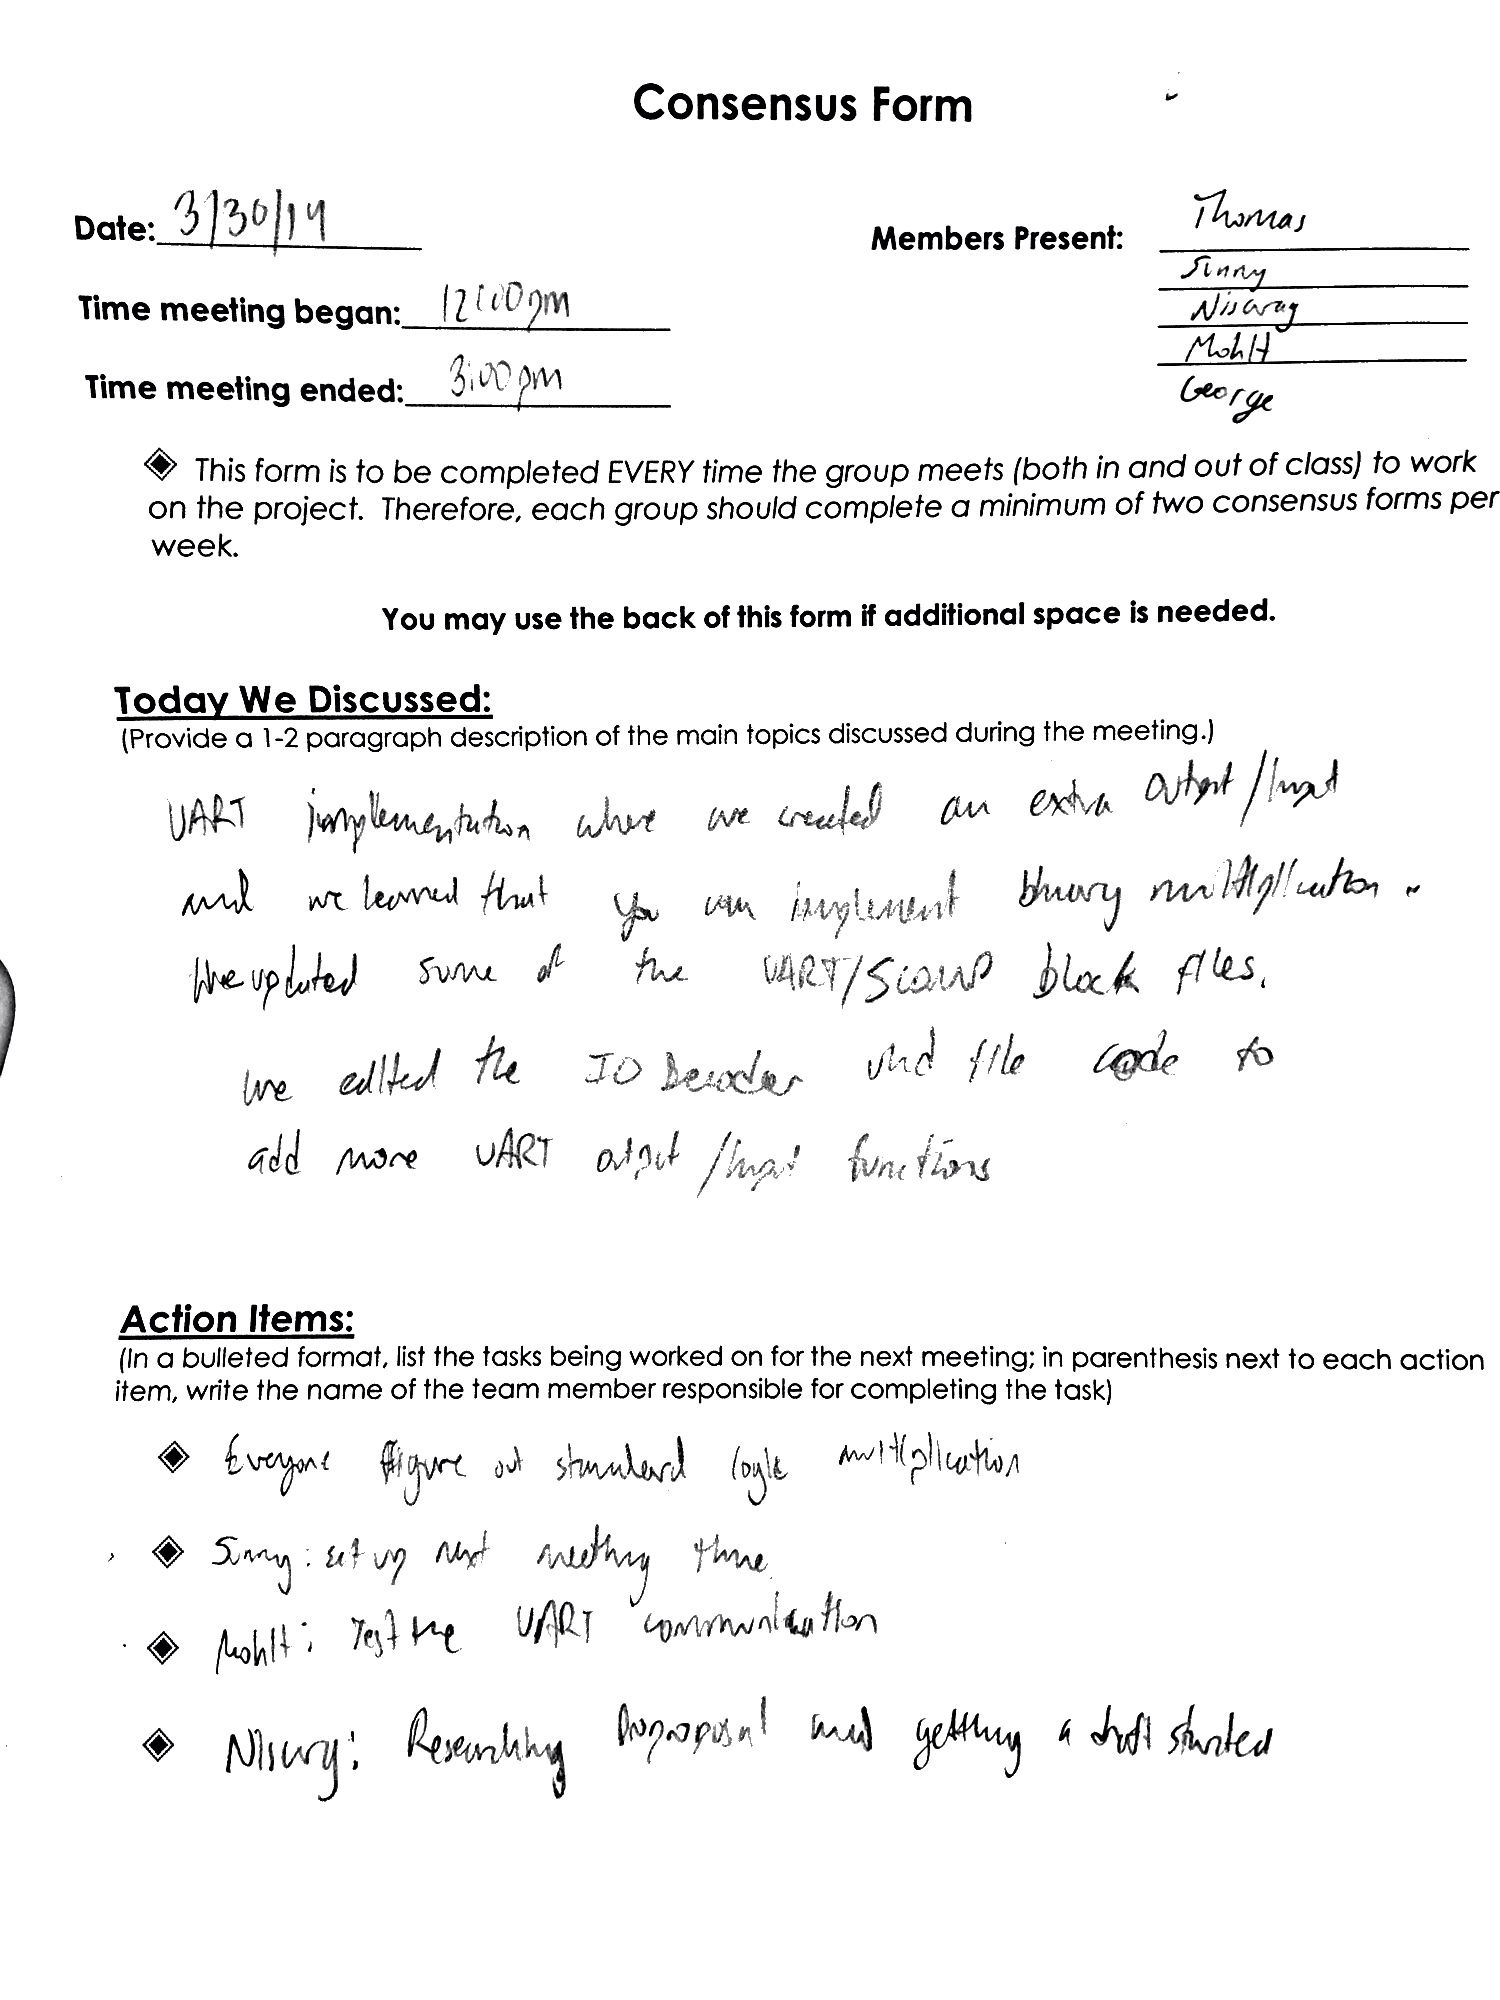 Consensus Form
Date: 3/30/14
Members Present: Thomas
Sunny
Nisarg
Mohit
George
Time meeting began: 12:00pm
Time meeting ended: 3:00pm
◈ This form is to be completed EVERY time the group meets (both in and out of class) to work
on the project. Therefore, each group should complete a minimum of two consensus forms per
week.
You may use the back of this form if additional space is needed.
Today We Discussed:
(Provide a 1-2 paragraph description of the main topics discussed during the meeting.)
UART implementation where we created an extra output/input
and we learned that you can implement binary multiplication.
We updated some of the UART/Scomp block files.
We edited the IO Decoder vhd file code to
add more UART output/input functions
Action Items:
(In a bulleted format, list the tasks being worked on for the next meeting; in parenthesis next to each action
item, write the name of the team member responsible for completing the task)
◈ Everyone figure out standard logic multiplication
◈ Sunny: set up next meeting time
◈ Mohit: Test the UART communication
◈ Nisarg: Researching proposal and getting a draft started